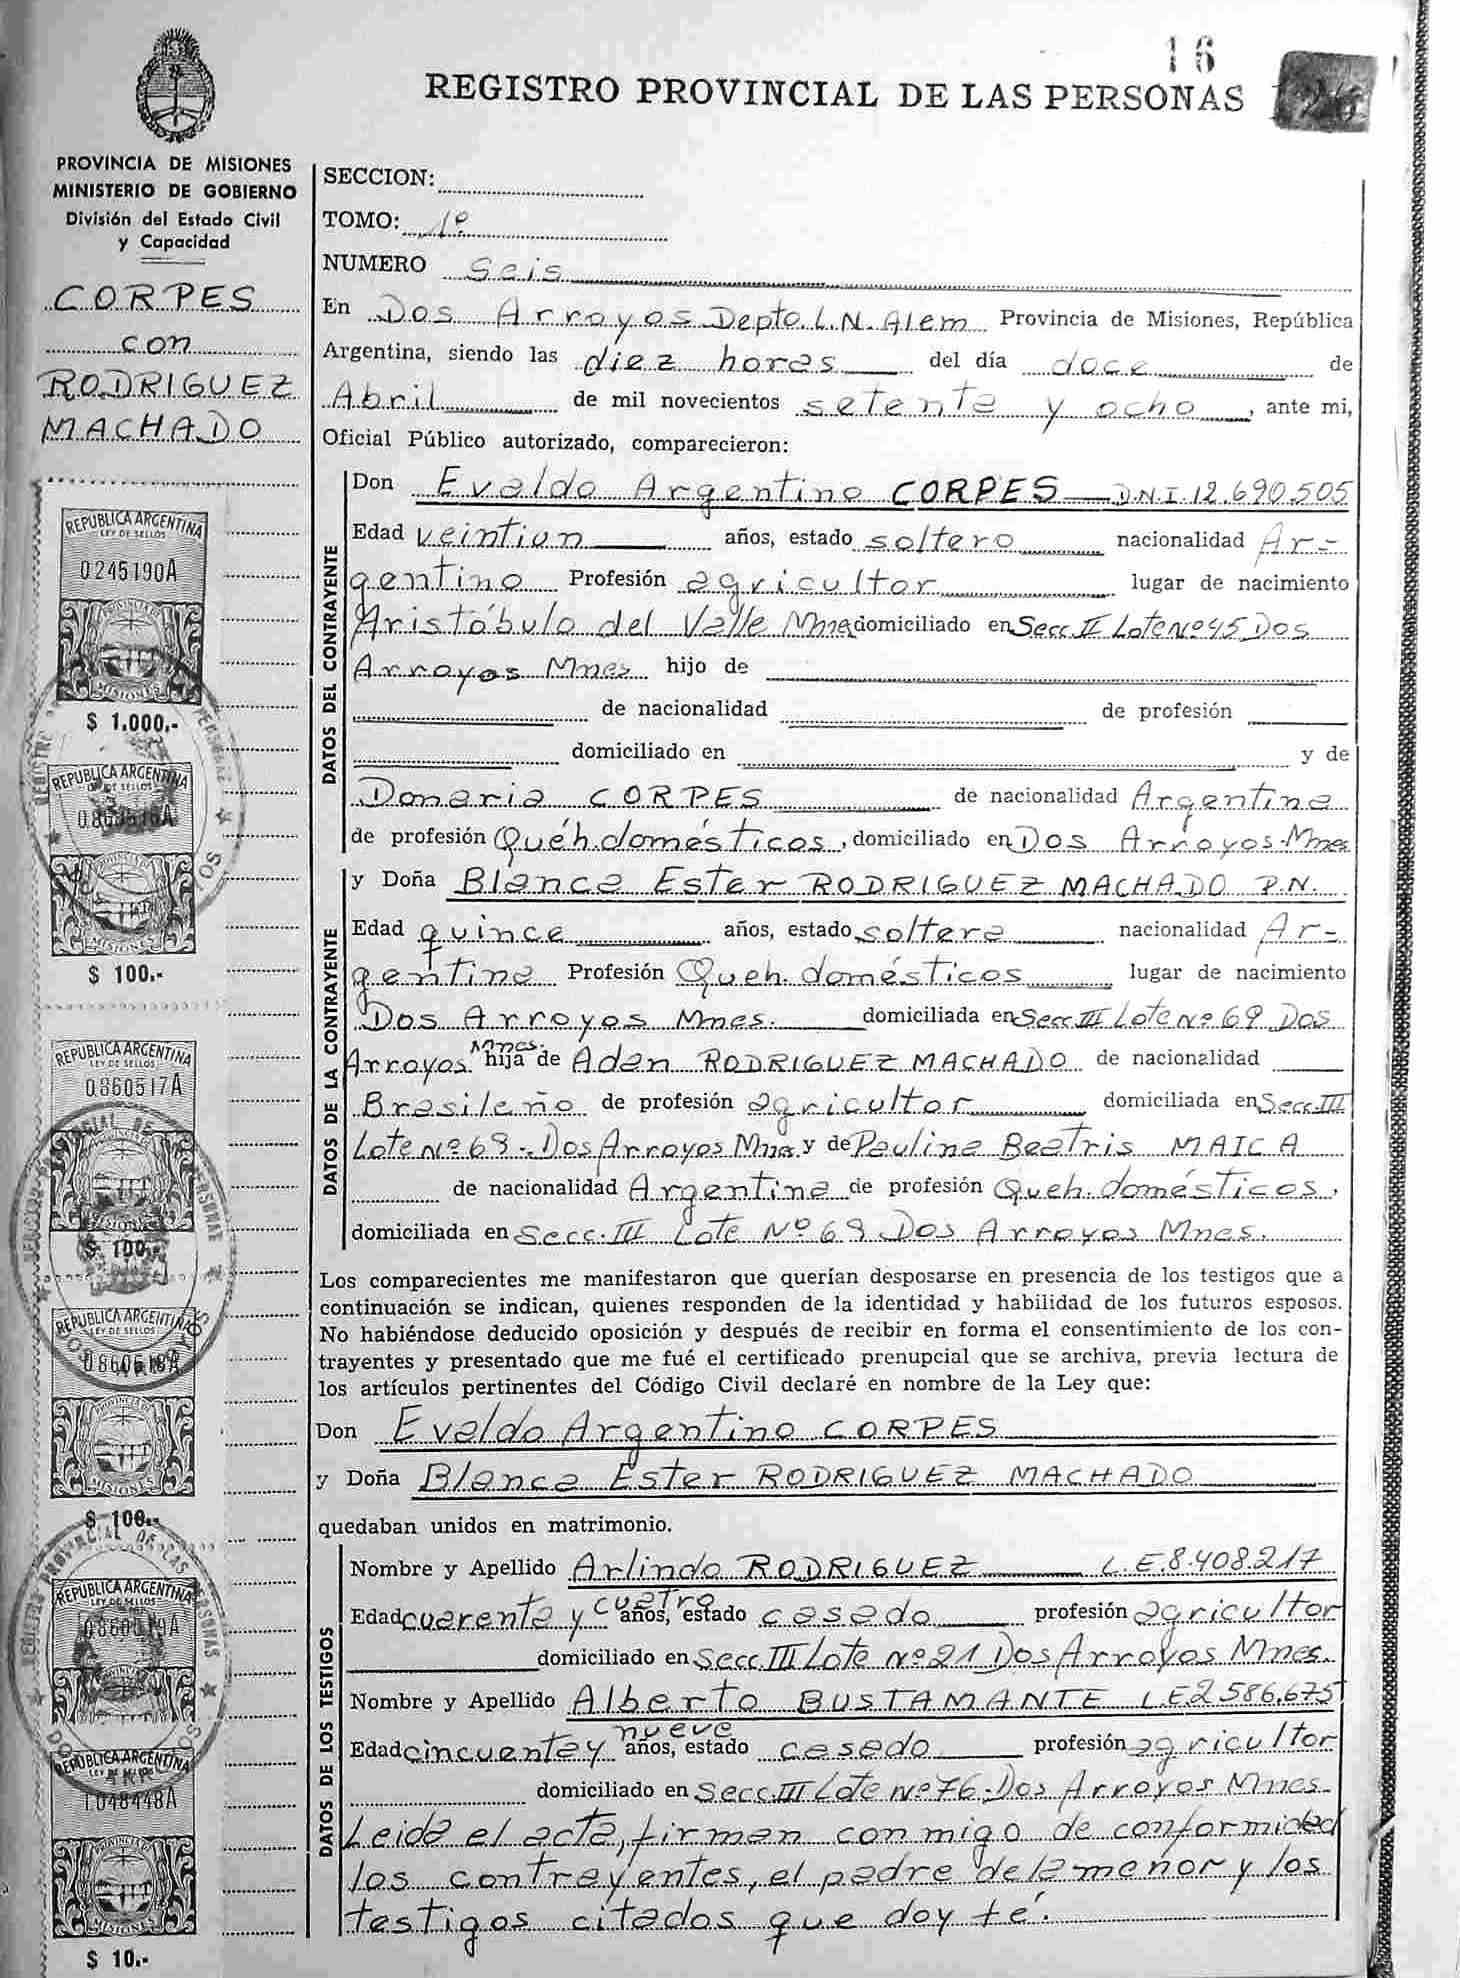 16
REGISTRO PROVINCIAL DE LAS PERSONAS
PROVINCIA DE MISIONES
MINISTERIO DE GOBIERNO
División del Estado Civil
y Capacidad
CORPES
con
RODRIGUEZ
MACHADO
REPUBLICA ARGENTINA
LEY DE SELLOS
0245190A
MISIONES
$ 1.000.-
REPUBLICA ARGENTINA
LEY DE SELLOS
MISIONES
$ 100.-
REPUBLICA ARGENTINA
LEY DE SELLOS
0860517A
MISIONES
$ 100.-
REPUBLICA ARGENTINA
LEY DE SELLOS
MISIONES
$ 100.-
REPUBLICA ARGENTINA
LEY DE SELLOS
REPUBLICA ARGENTINA
LEY DE SELLOS
1048448A
MISIONES
$ 10.-
SECCION:
TOMO: 1º
NUMERO Seis
En Dos Arroyos Depto. L.N. Alem Provincia de Misiones, República
Argentina, siendo las diez horas del día doce de
Abril de mil novecientos setenta y ocho, ante mi,
Oficial Público autorizado, comparecieron:
DATOS DEL CONTRAYENTE
Don Evaldo Argentino CORPES D.N.I. 12.690.505
Edad veintiun años, estado soltero nacionalidad Ar-
gentino Profesión agricultor lugar de nacimiento
Aristóbulo del Valle Mnes domiciliado en Secc II Lote Nº 45 Dos
Arroyos Mnes hijo de
de nacionalidad de profesión
domiciliado en y de
Donaria CORPES de nacionalidad Argentina
de profesión Queh. domésticos, domiciliado en Dos Arroyos-Mnes
DATOS DE LA CONTRAYENTE
y Doña Blanca Ester RODRIGUEZ MACHADO P.N.
Edad quince años, estado soltera nacionalidad Ar-
gentina Profesión Queh. domésticos lugar de nacimiento
Dos Arroyos Mnes. domiciliada en Secc III Lote Nº 69 Dos
Arroyos Mnes. hija de Adan RODRIGUEZ MACHADO de nacionalidad
Brasileño de profesión agricultor domiciliada en Secc. III
Lote Nº 69-. Dos Arroyos Mnes y de Paulina Beatris MAICA
de nacionalidad Argentina de profesión Queh. domésticos,
domiciliada en Secc. III Lote Nº 69 Dos Arroyos Mnes.
Los comparecientes me manifestaron que querían desposarse en presencia de los testigos que a
continuación se indican, quienes responden de la identidad y habilidad de los futuros esposos.
No habiéndose deducido oposición y después de recibir en forma el consentimiento de los con-
trayentes y presentado que me fué el certificado prenupcial que se archiva, previa lectura de
los artículos pertinentes del Código Civil declaré en nombre de la Ley que:
Don Evaldo Argentino CORPES
y Doña Blanca Ester RODRIGUEZ MACHADO
quedaban unidos en matrimonio.
DATOS DE LOS TESTIGOS
Nombre y Apellido Arlindo RODRIGUEZ L.E. 8.408.217
Edad cuarenta y cuatro años, estado casado profesión agricultor
domiciliado en Secc. III Lote Nº 21 Dos Arroyos Mnes.
Nombre y Apellido Alberto BUSTAMANTE L.E 2.586.675
Edad cincuenta y nueve años, estado casado profesión agricultor
domiciliado en Secc. III Lote Nº 76-Dos Arroyos Mnes-
Leida el acta, firman con migo de conformidad
los contrayentes, el padre de la menor y los
testigos citados que doy fé.